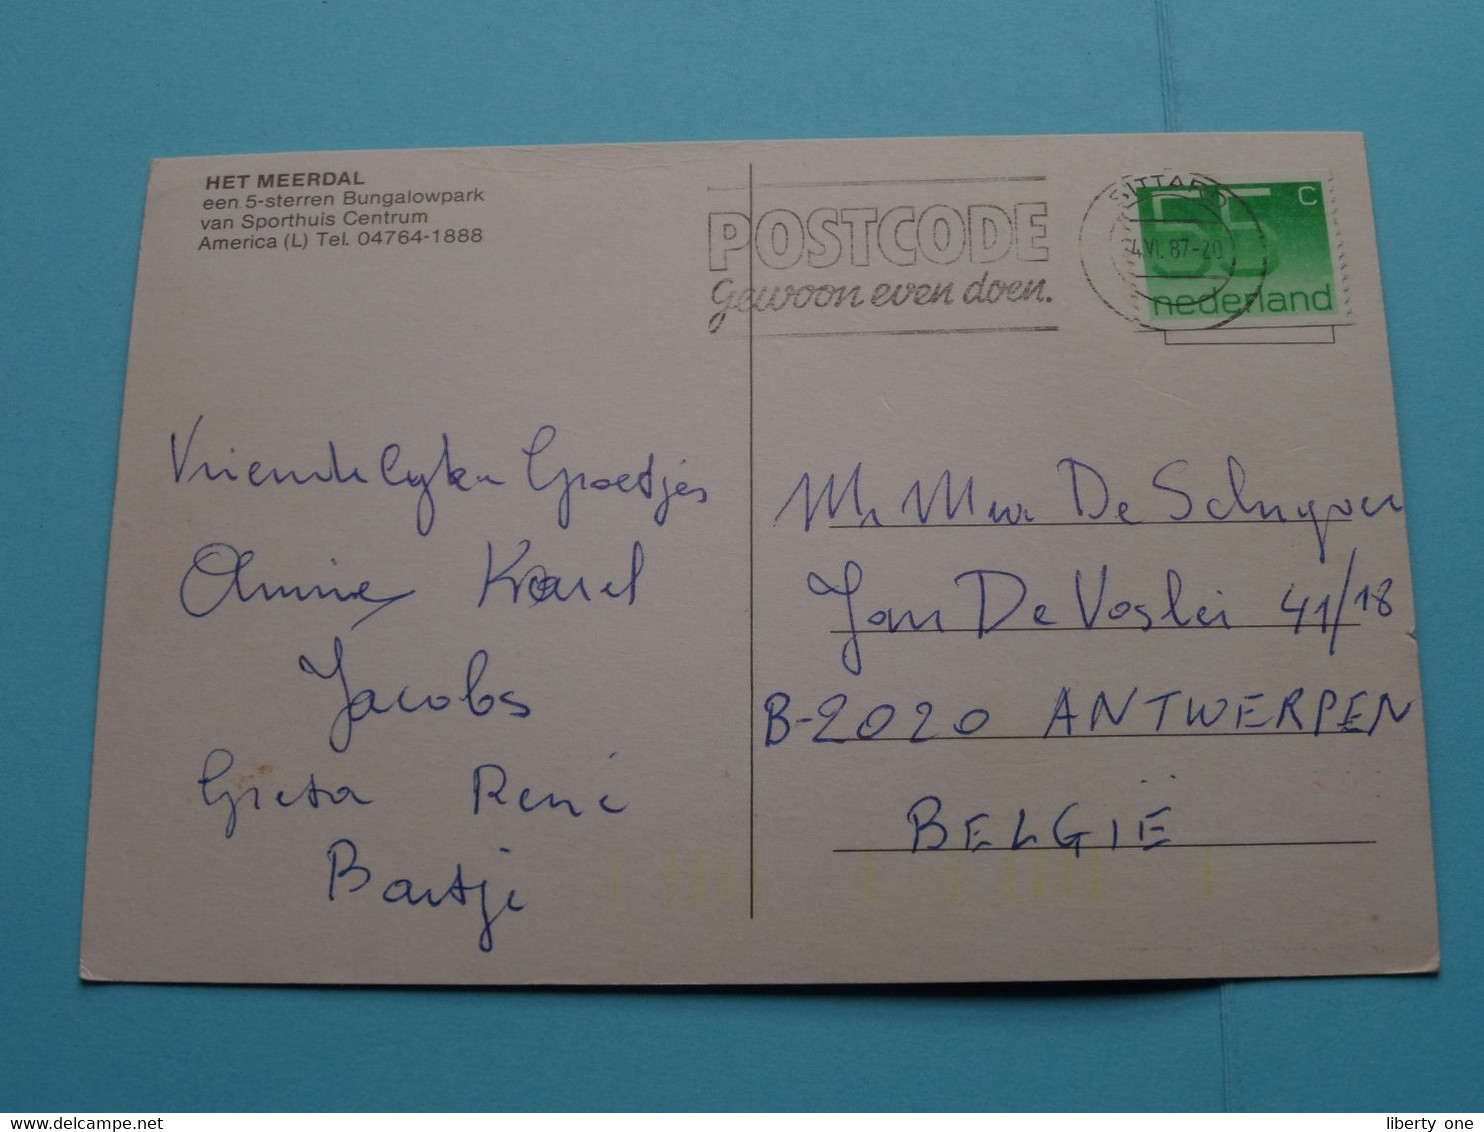 HET MEERDAL
een 5-sterren Bungalowpark
van Sporthuis Centrum
America (L) Tel. 04764-1888
POSTCODE
gewoon even doen.
SITTARD
4.VI. 87-20
55 c
nederland
Vriendelyken Groetjes
Karel
Jacobs
Greta René
Bartje
Mr Mevr De Schryver
Jan De Voslei 41/18
B-2020 ANTWERPEN
BELGIË
liberty one